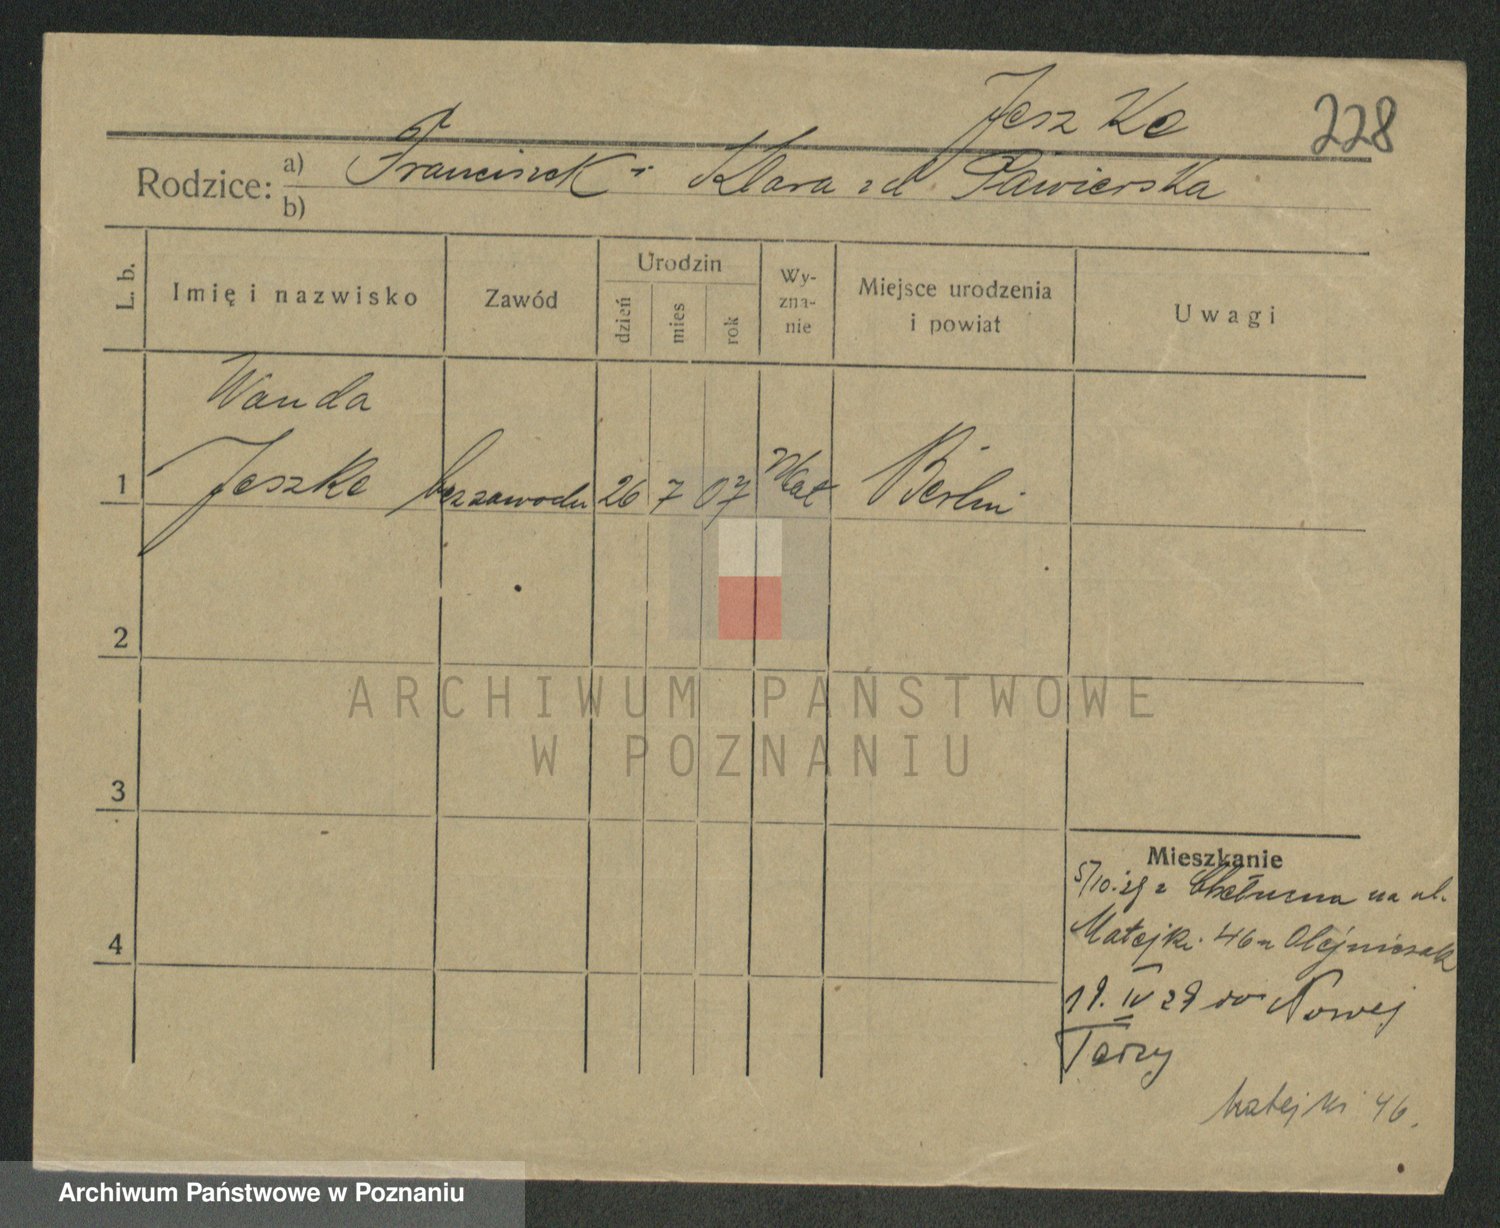 Jeszke
228
Rodzice: a) Franciszek i Klara zd.
b)
L. b.
Imię i nazwisko
Zawód
Urodzin
dzień
mies
rok
Wy-
zna-
nie
Miejsce urodzenia
i powiat
Uwagi
Wanda
1 Jeszke bez zawodu 26 7 07 Kat Berlin
2
3
4
Mieszkanie
5/10.29 z na ul.
Matejki 46 Olejniczak
19. IV 29 do Nowej
Matejki 46.
ARCHIWUM PAŃSTWOWE
W POZNANIU
Archiwum Państwowe w Poznaniu